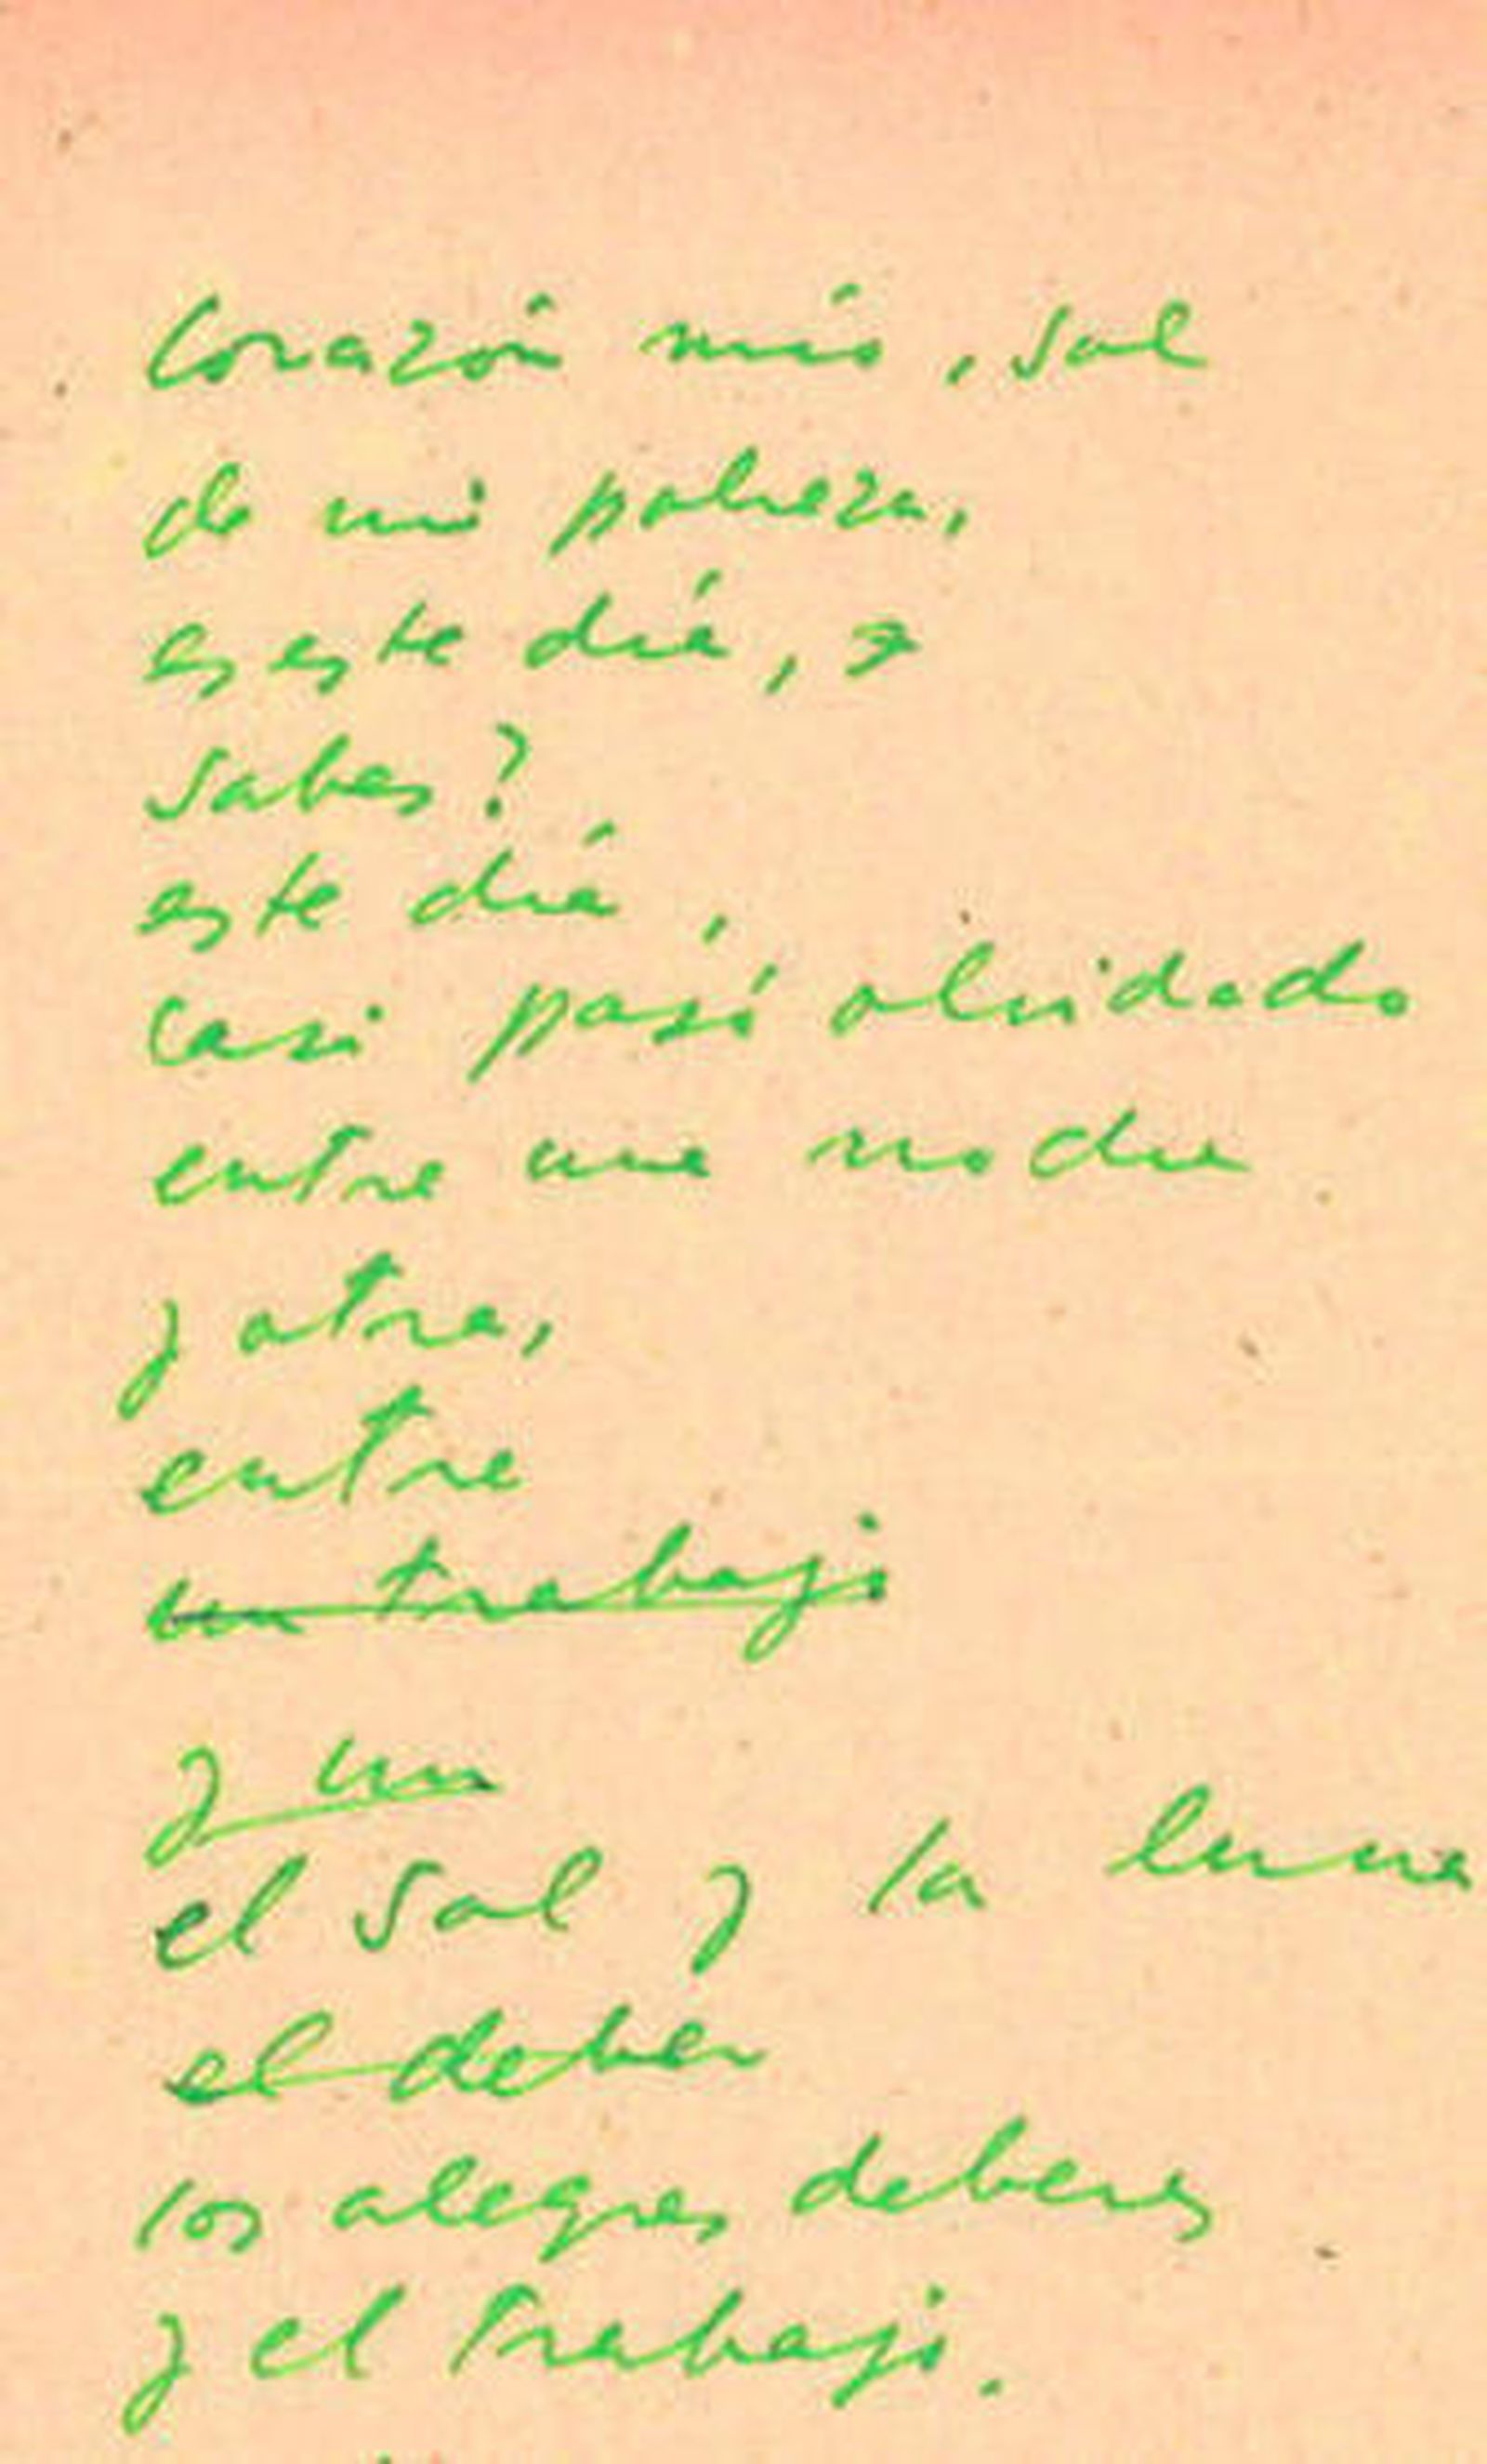 Corazón mío, sol
de mi pobreza,
es este día,
sabes?
este día,
casi pasó olvidado
entre una noche
y otra,
entre
un trabajo
y un
el sol y la luna
el deber
los alegres deberes
y el trabajo.